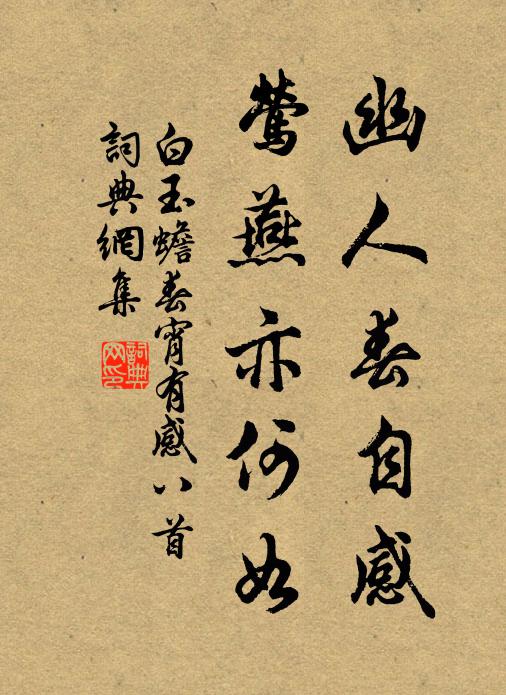 幽人春自感
鶯燕亦何如
白玉蟾春宵有感八首
詞典網集
詞典网印